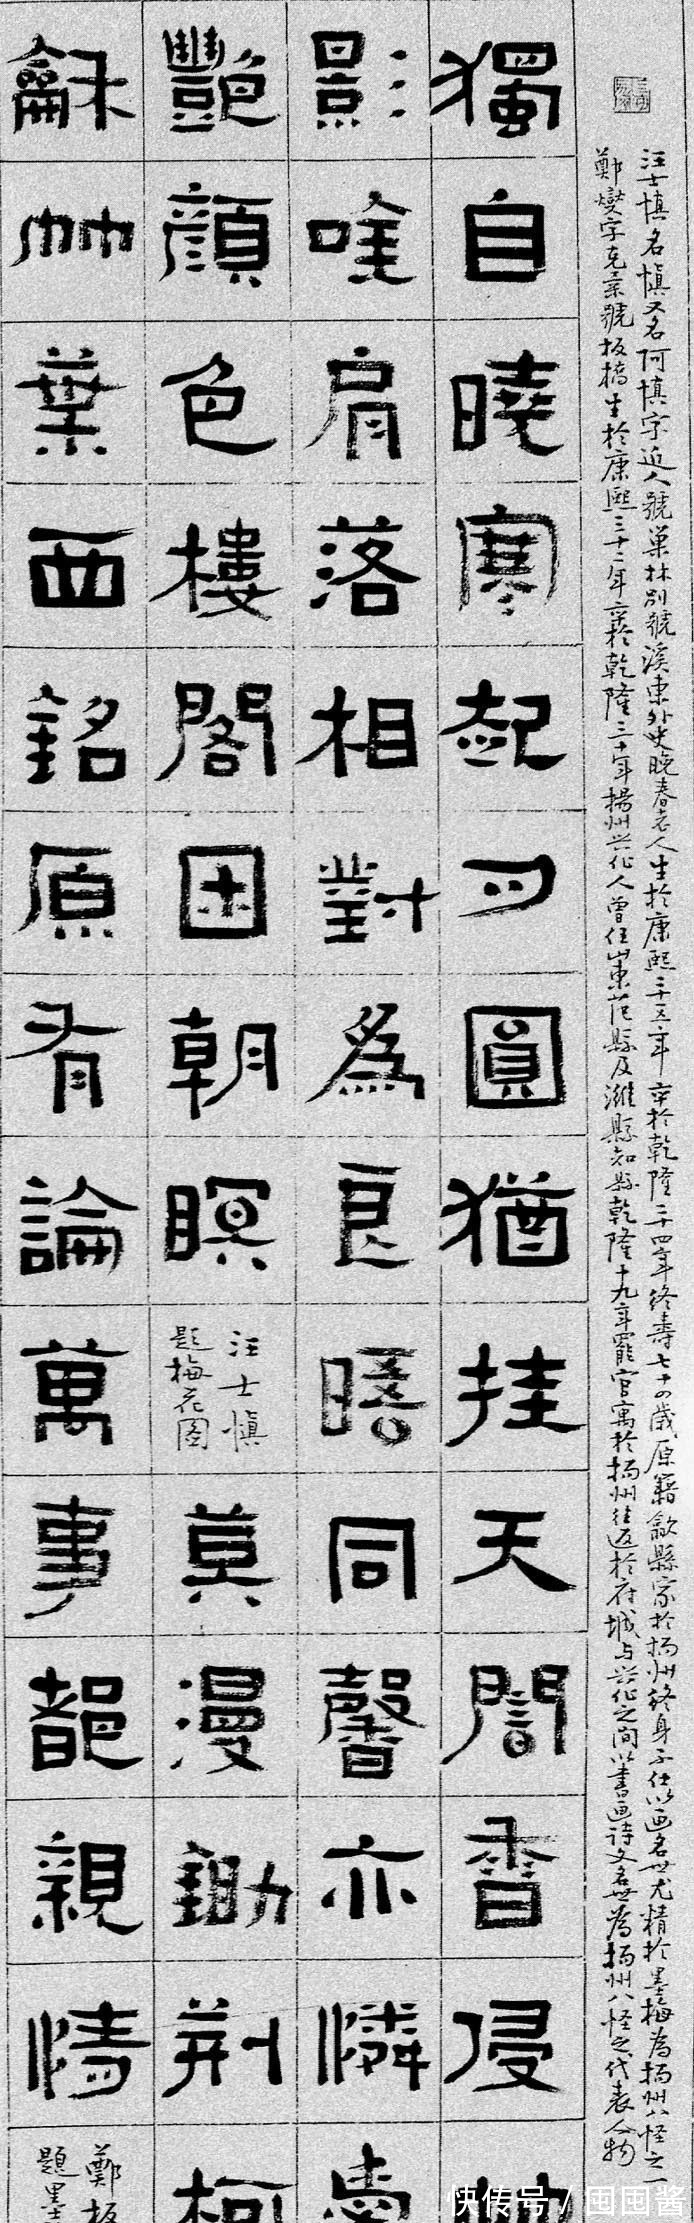 汪士慎名慎又名阿慎字近人號巢林別號溪東外史晚春老人生於康熙二十五年卒於乾隆二十四年終壽七十四歲原籍歙縣家於揚州終身不仕以画名世尤精於墨梅為揚州八怪之一
鄭燮字克柔號板橋生於康熙三十二年卒於乾隆三十年揚州興化人曾任山東范縣及濰縣知縣乾隆十九年罷官寓於揚州往返於府城与興化之间以書画詩文名世為揚州八怪之代表人物
獨自曉寒起月圓猶挂天誾香侵
影唫肩落相對為良晤同馨亦憐
艷顏色樓閣困朝暝
汪士慎
題梅花图
莫漫鋤荊柯
龢竹葉西銘原有論萬事都親情
鄭板
題墨
快传号 / 囤囤酱